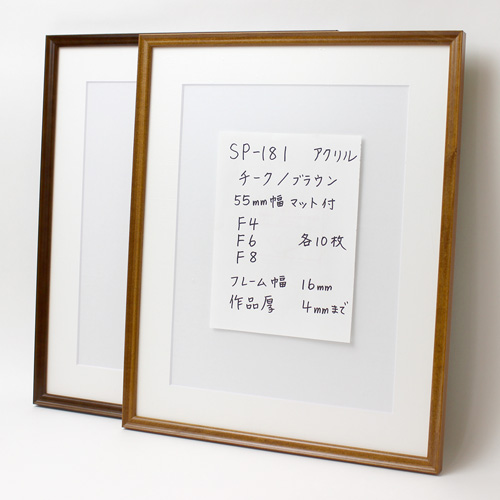 SP-181 アクリル
チーク/ブラウン
55mm幅 マット付
F4
F6 各10枚
F8
フレーム幅 16mm
作品厚 4mmまで